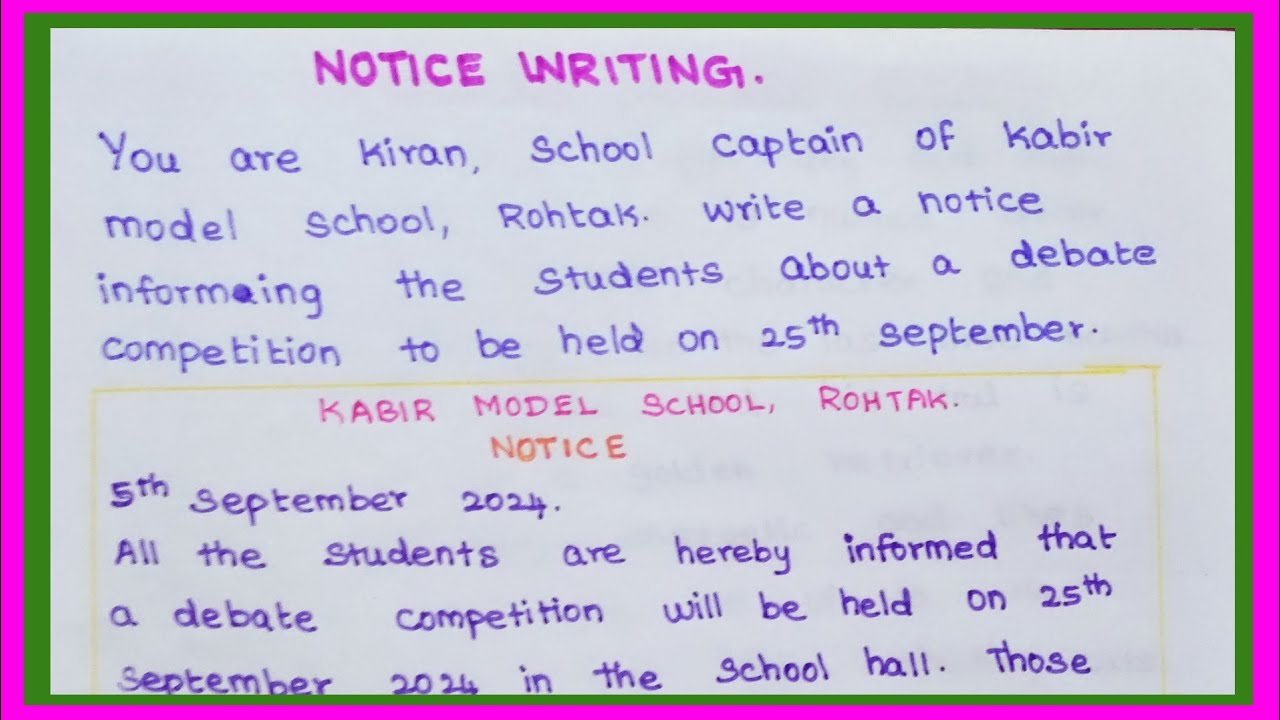 NOTICE WRITING.
You are Kiran, School captain of Kabir
model school, Rohtak. write a notice
informaing the Students about a debate
competition to be held on 25th september.
KABIR MODEL SCHOOL, ROHTAK.
NOTICE
5th september 2024.
All the students are hereby informed that
a debate competition will be held on 25th
september 2024 in the school hall. Those